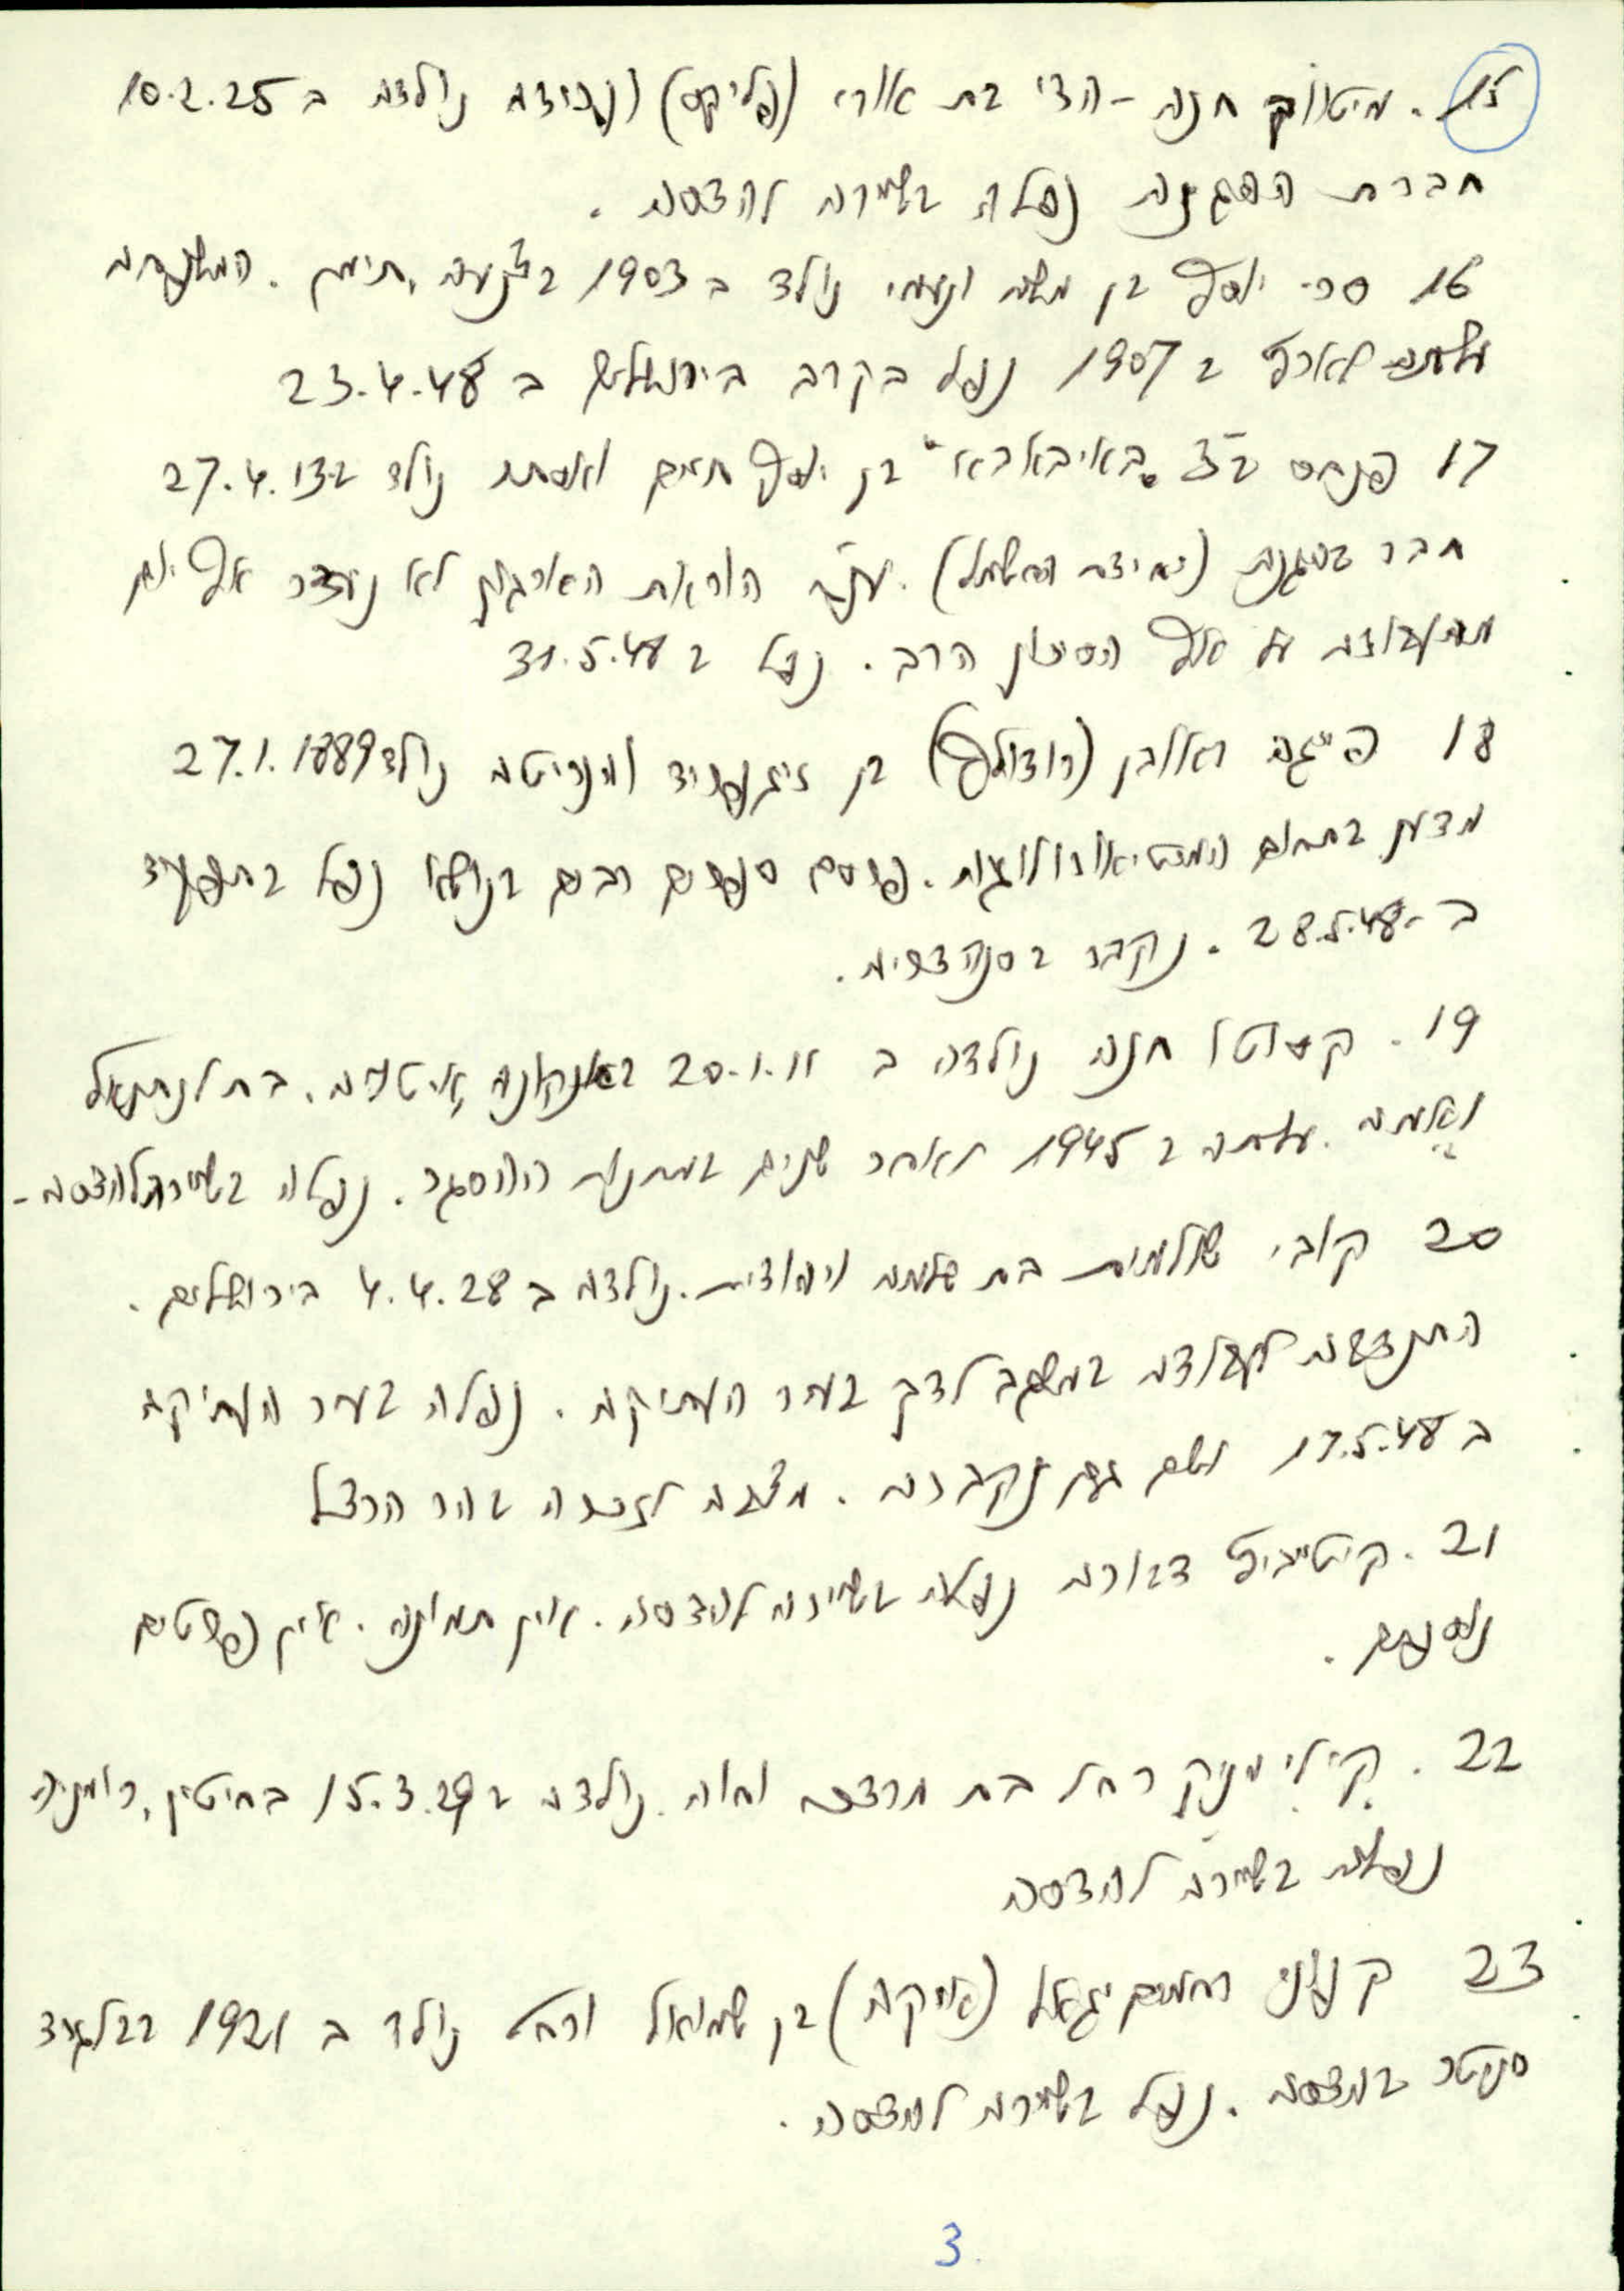 15. מיטווק חנה - הדי בת אורי (פליקס) ונקידה נולדה ב 10.2.25
חברת ההגנה נפלה בשיירה להדסה.
16 סרי יוסף בן משה ונעמי נולד ב 1903 בצנעה, תימן. המשפחה
עלתה לארץ ב 1907 נפל בקרב בירושלים ב 23.4.48
17 פנחס בֿצ באיבאבא" בן יוסף חיים ואסתר נולד ב 27.4.13
חבר בהגנה (יחידת השמל). עפ"י הוראות הארגון לא נעדר אף יום
מהעבודה על אף הסיכון הרב. נפל ב 31.5.48
18 פייגה ראובן (רודולף) בן זיגפריד והנריטה נולד 27.1.1889
מדען בתחום המטיאורולוגיה. פרסם ספרים רבים בנושא נפל בתפקיד
ב-28.5.48. נקבר בסנהדריה.
19. קסוטו חנה נולדה ב 20.1.11 באנקונה, איטליה. בת לנתנאל
ואֶמה. עלתה ב 1945 לאחר שנים במחנות ההסגר. נפלה בשיירה להדסה-
20 קובי שולמית בת שלמה ויהודית. נולדה ב 4.4.28 בירושלים.
התנדבה לעבודה במשגב לדך בעיר העתיקה. נפלה בעיר העתיקה
ב 17.5.48 ושם גם נקברה. מצבה לזכרה בהר הרצל
21. קיטייביץ דבורה נפלה בשיירה להדסה. אין תמונה. אין פרטים
נוספים.
22. קִילִימְניק רחל בת מרדכי וחוה. נולדה ב 15.3.29 בחוטין, רומניה
נפלה בשיירה להדסה
23 קנזני רחמים יגאל (ז'יקה) בן שמואל ורחל נולד ב 1921 בבלגרד
סניטר בהדסה. נפל בשיירה להדסה.
3